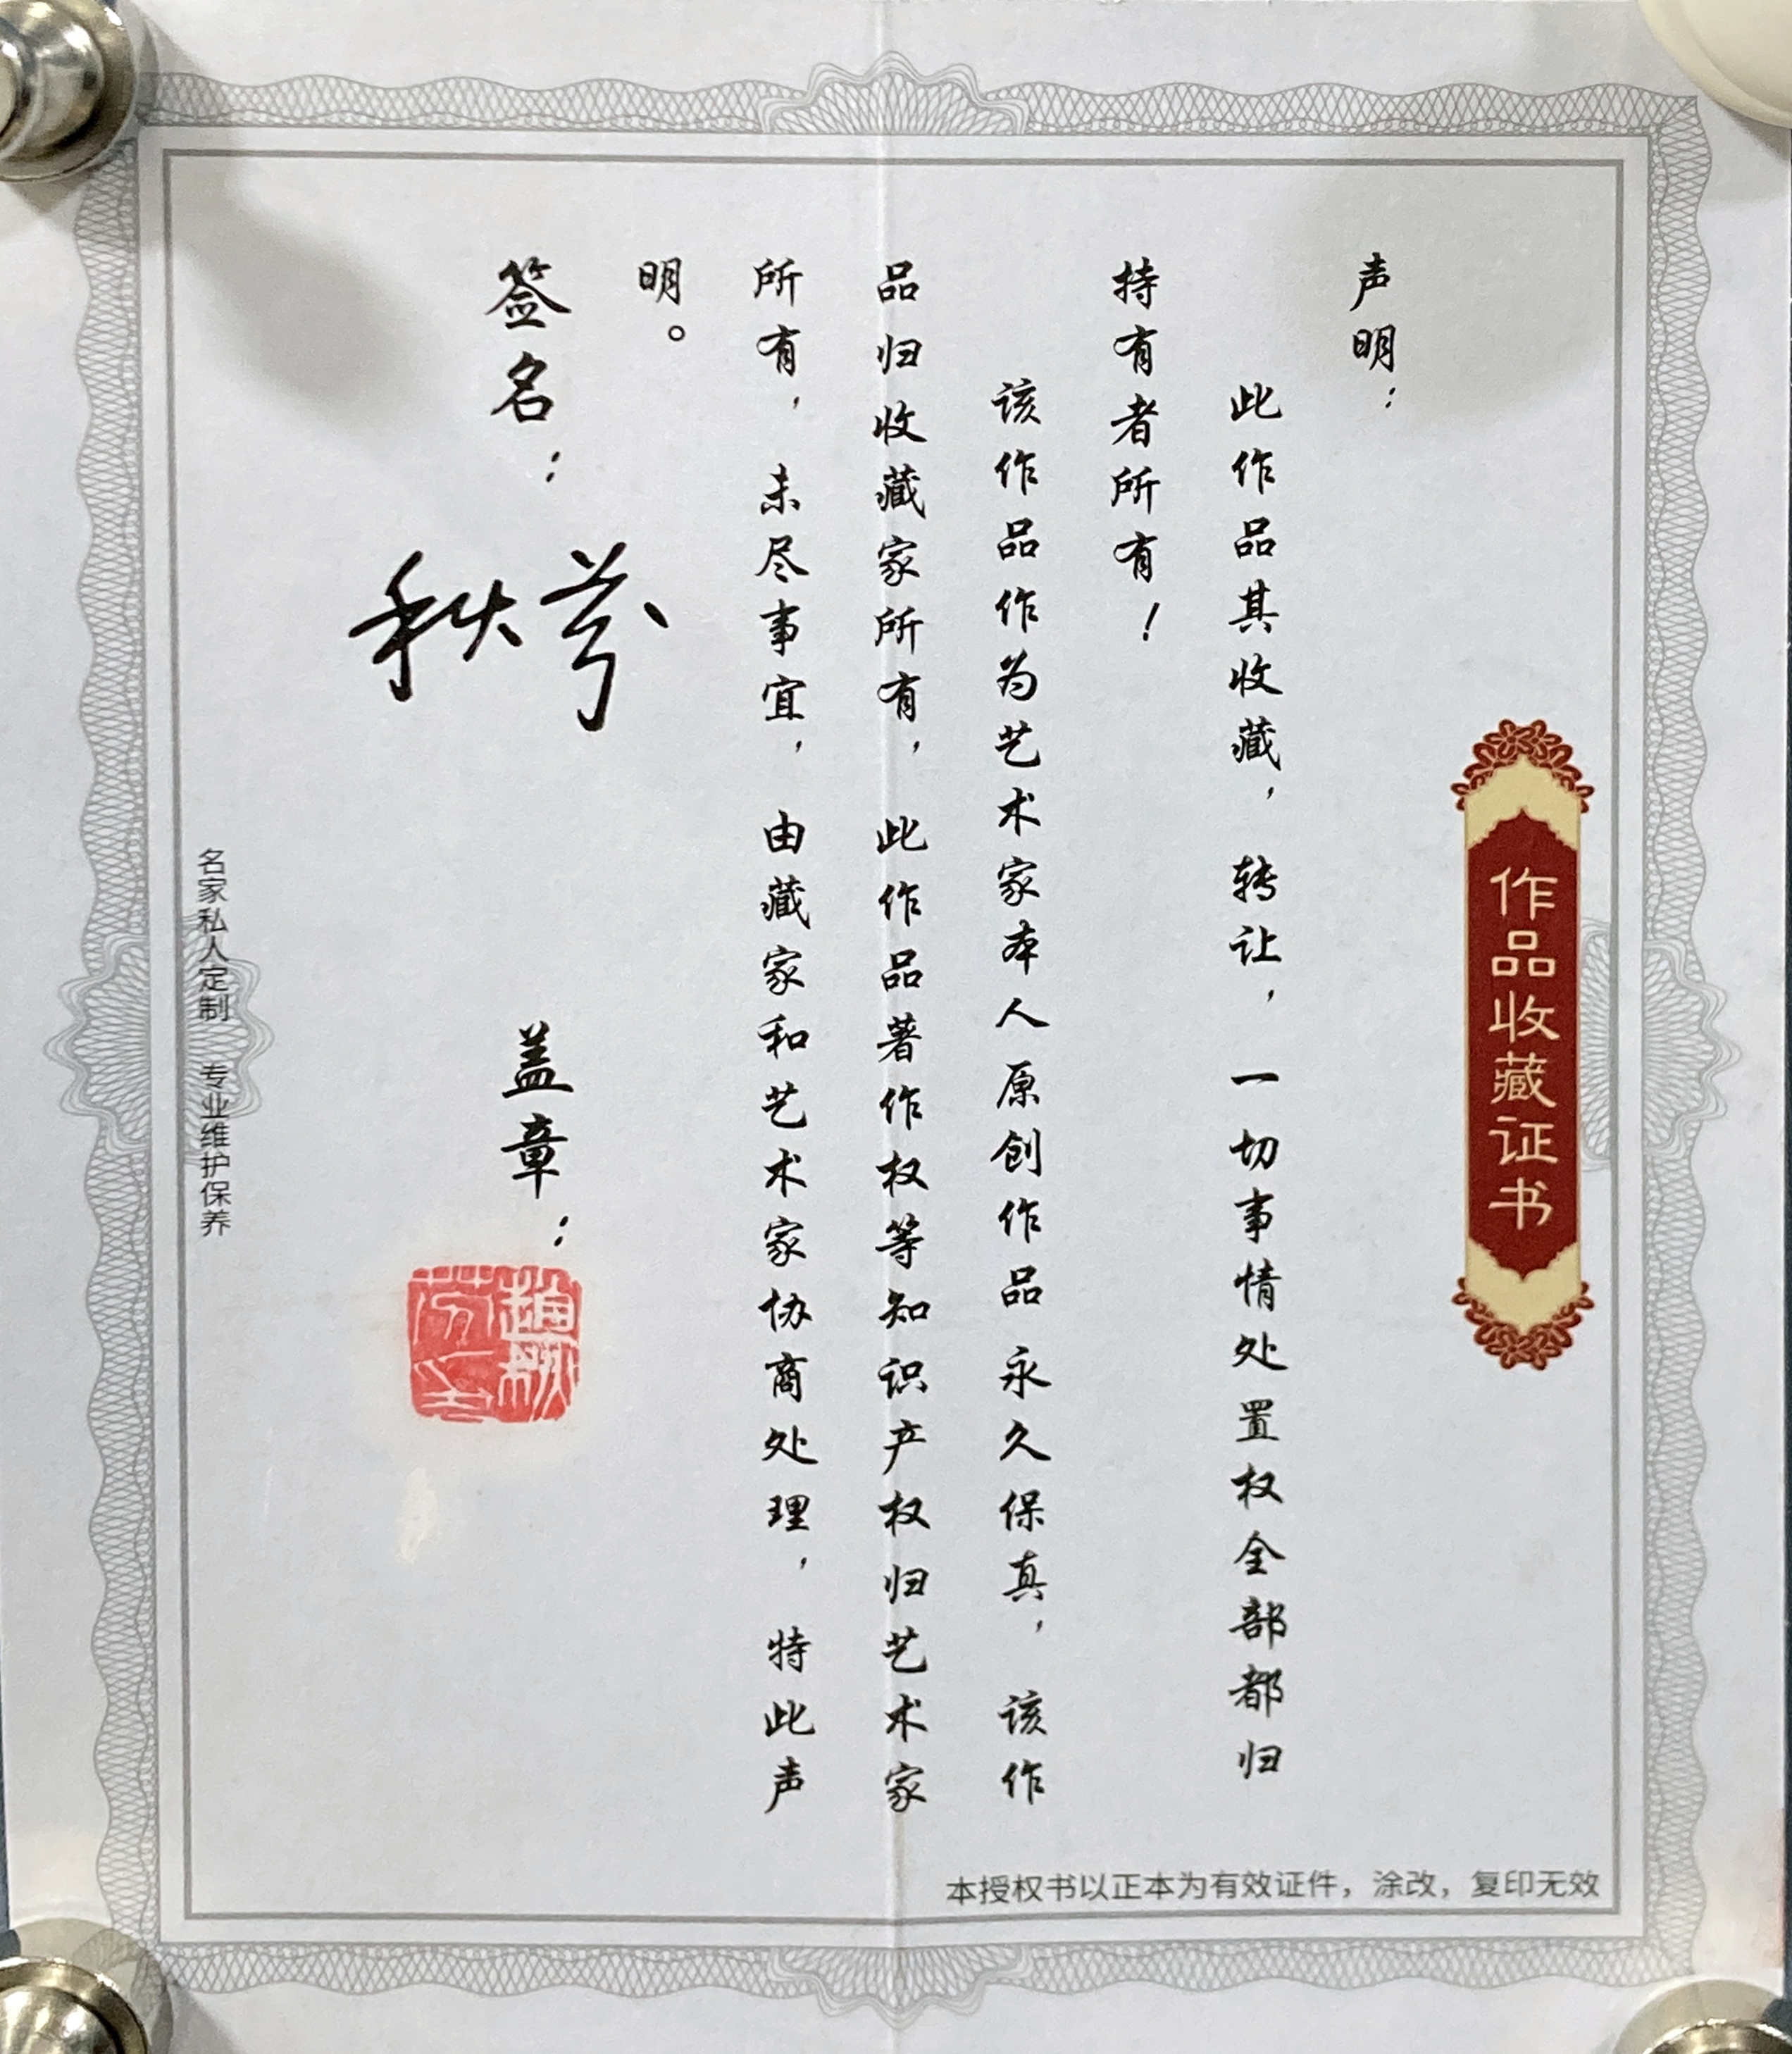 作品收藏证书
声明：
此作品其收藏，转让，一切事情处置权全部都归
持有者所有！
该作品作为艺术家本人原创作品永久保真，该作
品归收藏家所有，此作品著作权等知识产权归艺术家
所有，未尽事宜，由藏家和艺术家协商处理，特此声
明。
签名：
秋芬
盖章：
趙秋芬印
名家私人定制 专业维护保养
本授权书以正本为有效证件，涂改，复印无效